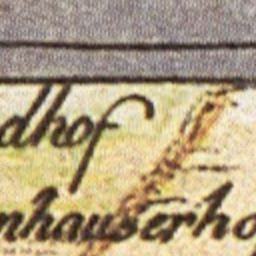 dhof
nhauserho